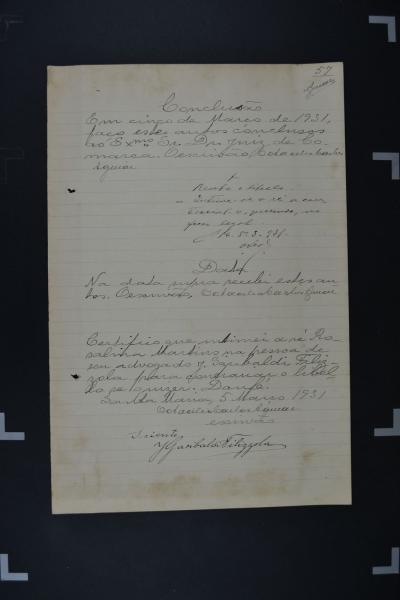 57
Conclusão
Em cinco de Março de 1931,
faço estes autos conclusos
ao Exmo. Sr. Dr. Juiz de Co-
marca. O escrivão, Octacilio Carlos
Aguiar
Recebo o libello.
Intime-se a ré a
contrariar-o, querendo, no
prazo legal.
5.3.931
Data
Na data supra recebi estes au-
tos. O escrivão, Octacilio Carlos Aguiar
Certifico que intimei a ré Ro-
salina Martins na pessoa de
seu advogado Y. Garibaldi Filiz-
zola para contrariar o libel-
lo se quizer. Dou fé.
Santa Maria, 5 Março 1931
Octacilio Carlos Aguiar
escrivão
Sciente,
YGaribaldi Filizzola